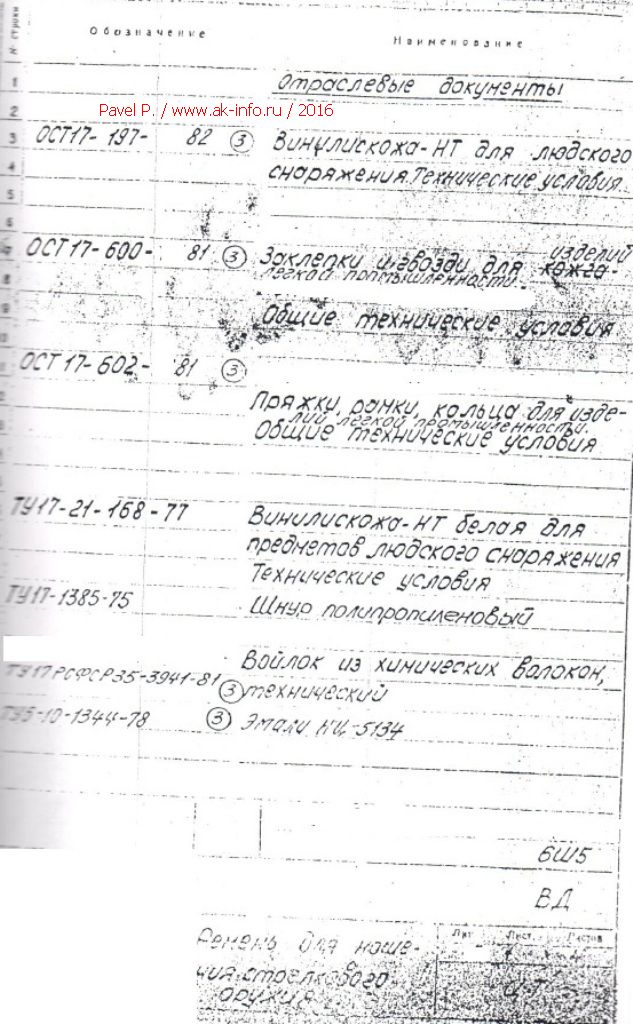 № строки
Обозначение Наименование
1 Отраслевые документы
2
Pavel P. / www.ak-info.ru / 2016
3 ОСТ17-197- 82 (3) Винилискожа-НТ для людского
4 снаряжения. Технические условия
5
6
изделий
ОСТ17-600- 81 (3) Заклепки и гвозди для кожга-
8 легкой промышленности.
9 Общие технические условия
ОСТ17-602- 81 (3)
Пряжки, рамки, кольца для изде-
лий легкой промышленности.
Общие технические условия
ТУ17-21-168-77 Винилискожа-НТ белая для
предметов людского снаряжения
Технические условия
ТУ17-1385-75 Шнур полипропиленовый
ТУ17РСФСР35-3941-81 Войлок из химических волокон,
(3) технический
ТУ6-10-1344-78 (3) Эмали НЦ-5134
6Ш5
ВД
Лит. Лист. Листов
Ремень для ноше-
ния стрелкового
оружия